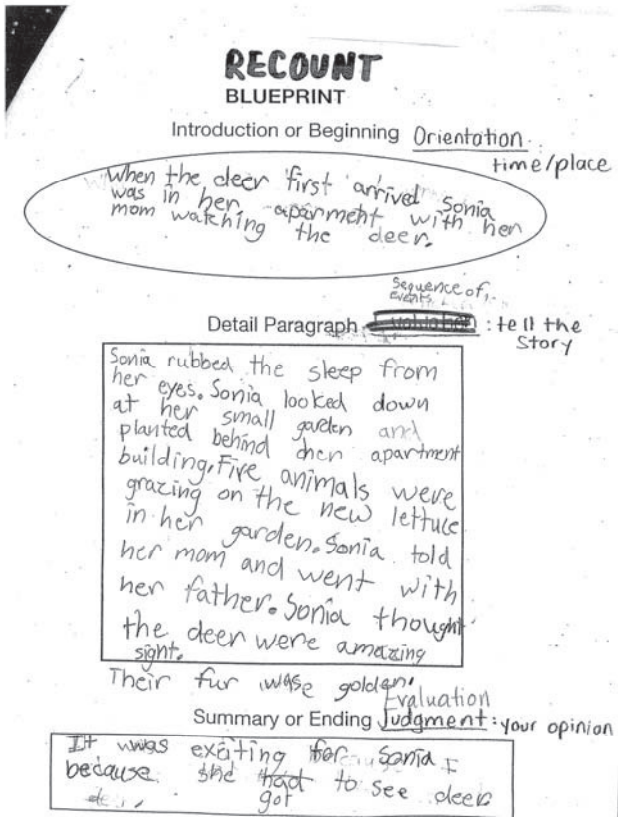 RECOUNT
BLUEPRINT
Introduction or Beginning Orientation:
time/place
When the deer first arrived Sonia
was in her aparment with her
mom watching the deer.
Sequence of
events
Detail Paragraph : tell the
Story
Sonia rubbed the sleep from
her eyes. Sonia looked down
at her small garden and
planted behind her apartment
building, Five animals were
grazing on the new lettuce
in her garden. Sonia told
her mom and went with
her father. Sonia thought
the deer were amazing
sight.
Their fur wase golden.
Evaluation
Summary or Ending Judgment: your opinion
It was exciting for Sonia
because she had to see deer
got